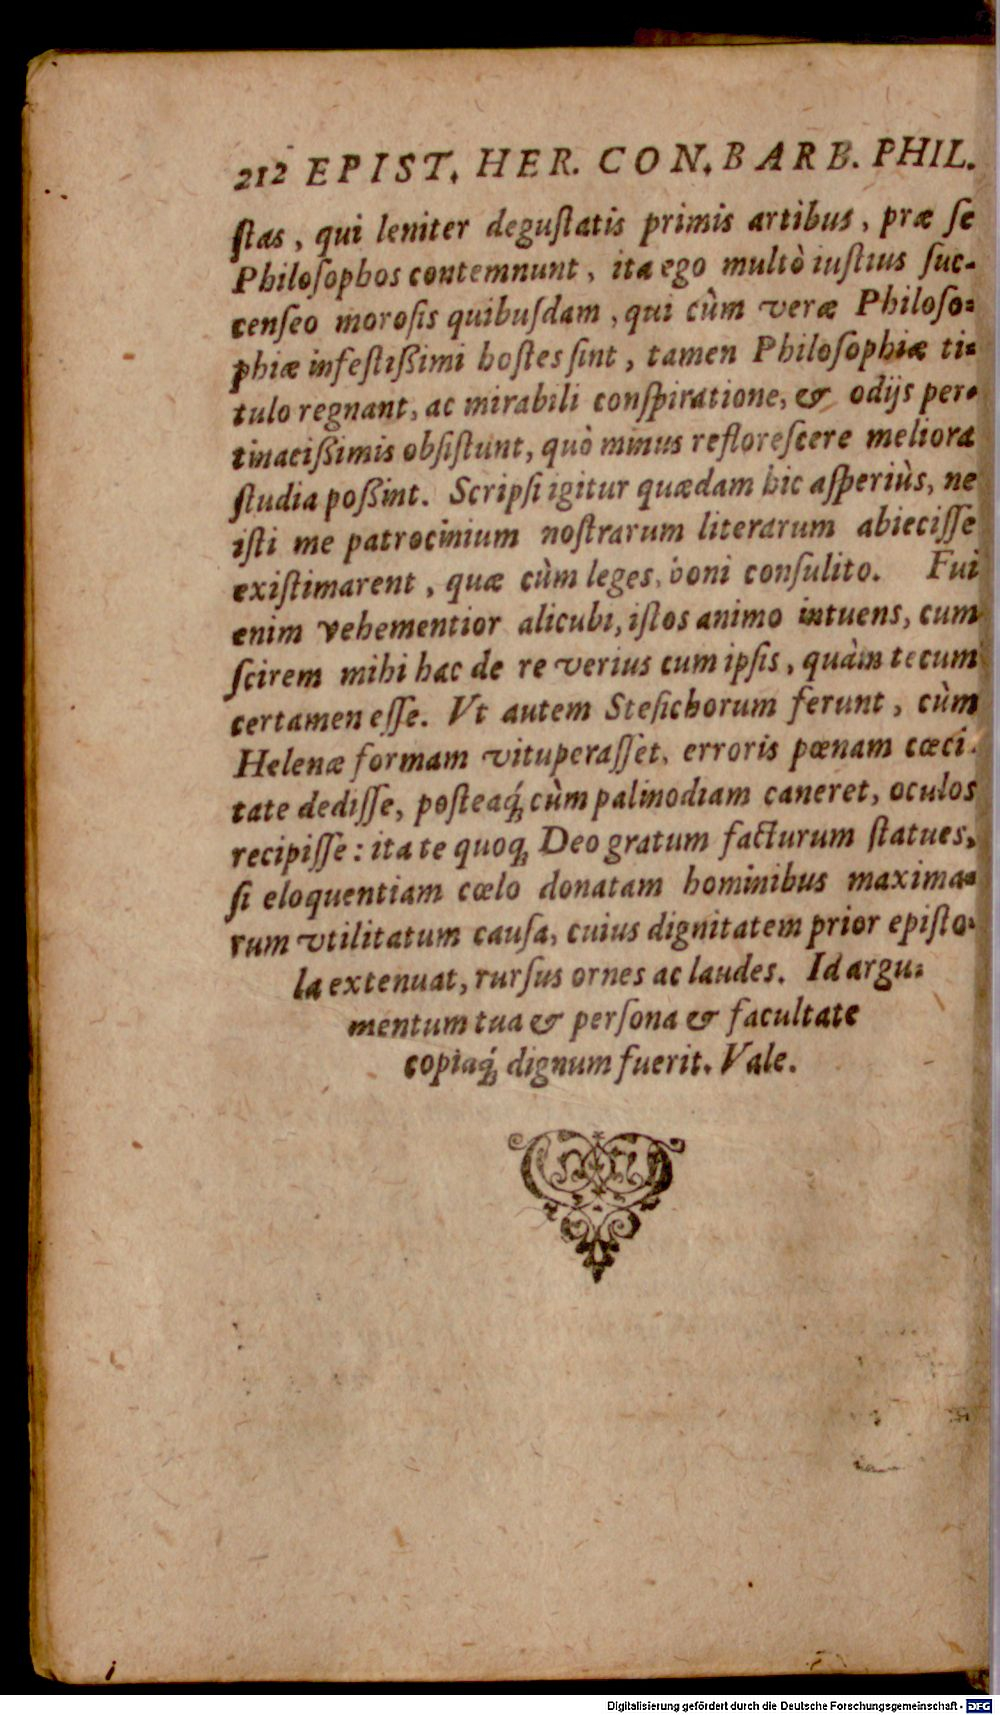 212 EPIST. HER. CON. BARB. PHIL.
ſtas, qui leniter deguſtatis primis artibus, præ ſe
Philoſophos contemnunt, ita ego multò iuſtius ſuc-
cenſeo moroſis quibuſdam, qui cùm veræ Philoſo-
phiæ infeſtißimi hostes ſint, tamen Philoſophiæ ti-
tulo regnant, ac mirabili conſpiratione, & odijs per-
tinacißimis obſiſtunt, quò minus refloreſcere meliora
ſtudia poßint. Scripſi igitur quædam hic aſperiùs, ne
iſti me patrocinium noſtrarum literarum abieciſſe
exiſtimarent, quæ cùm leges, boni conſulito. Fui
enim vehementior alicubi, iſtos animo intuens, cum
ſcirem mihi hac de re verius cum ipſis, quàm tecum
certamen eſſe. Vt autem Steſichorum ferunt, cùm
Helenæ formam vituperaſſet, erroris pœnam cœci-
tate dediſſe, poſteaq́; cùm palinodiam caneret, oculos
recipiſſe: ita te quoq; Deo gratum facturum ſtatues,
ſi eloquentiam cœlo donatam hominibus maxima-
rum vtilitatum cauſa, cuius dignitatem prior epiſto-
la extenuat, rurſus ornes ac laudes. Id argu-
mentum tua & perſona & facultate
copiaq́; dignum fuerit. Vale.
Digitalisierung gefördert durch die Deutsche Forschungsgemeinschaft - DFG